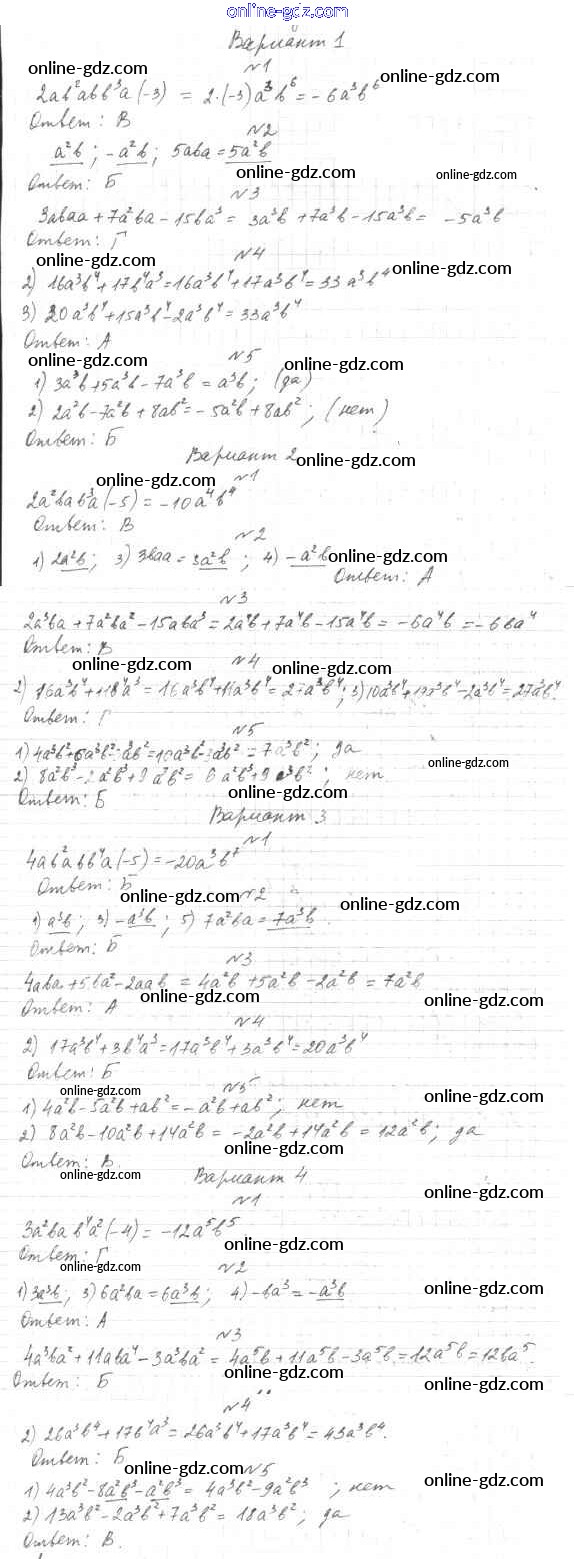 online-gdz.com
Вариант 1
№1
online-gdz.com online-gdz.com
2ab²abb³a(-3) = 2·(-3)a³b⁶ = -6a³b⁶
Ответ: В
№2
a²b; -a²b; 5aba = 5a²b
Ответ: Б online-gdz.com
№3
3abaa + 7a²ba - 15ba³ = 3a³b + 7a³b - 15a³b = -5a³b
Ответ: Г
№4
2) 16a³b⁴ + 17b⁴a³ = 16a³b⁴ + 17a³b⁴ = 33a³b⁴ online-gdz.com
3) 20a³b⁴ + 15a³b⁴ - 2a³b⁴ = 33a³b⁴
Ответ: А
online-gdz.com №5 online-gdz.com
1) 3a³b + 5a³b - 7a³b = a³b; (да)
2) 2a²b - 7a²b + 8ab² = -5a²b + 8ab²; (нет)
Ответ: Б
Вариант 2 online-gdz.com
online-gdz.com №1
2a²bab³a(-5) = -10a⁴b⁴
Ответ: В
№2
1) 2a²b; 3) 3baa = 3a²b; 4) -a²b online-gdz.com
Ответ: А
№3
2a³ba + 7a²ba² - 15aba³ = 2a⁴b + 7a⁴b - 15a⁴b = -6a⁴b = -6ba⁴
Ответ: В
online-gdz.com №4 online-gdz.com
Ответ: Г
№5
online-gdz.com
Ответ: Б online-gdz.com
Вариант 3
№1
4ab²abb⁴a(-5) = -20a³b⁷
Ответ: Б
online-gdz.com №2 online-gdz.com
1) a³b; 3) -a³b; 5) 7a²ba = 7a³b.
Ответ: Б
№3
4aba + 5ba² - 2aab = 4a²b + 5a²b - 2a²b = 7a²b
Ответ: А online-gdz.com online-gdz.com
№4
2) 17a³b⁴ + 3b⁴a³ = 17a³b⁴ + 3a³b⁴ = 20a³b⁴
Ответ: Б
online-gdz.com №5 online-gdz.com
1) 4a²b - 5a²b + ab² = -a²b + ab²; нет
2) 8a²b - 10a²b + 14a²b = -2a²b + 14a²b = 12a²b; да
online-gdz.com
Ответ: В.
online-gdz.com Вариант 4
online-gdz.com
№1
3a²bab⁴a²(-4) = -12a⁵b⁵
online-gdz.com
Ответ: Г
online-gdz.com №2
1) 3a³b; 3) 6a²ba = 6a³b; 4) -ba³ = -a³b online-gdz.com
Ответ: А
№3
4a³ba² + 11aba⁴ - 3a³ba² = 4a⁵b + 11a⁵b - 3a⁵b = 12a⁵b = 12ba⁵.
Ответ: Б online-gdz.com online-gdz.com
№4
2) 26a³b⁴ + 17b⁴a³ = 26a³b⁴ + 17a³b⁴ = 43a³b⁴.
Ответ: Б
online-gdz.com №5 online-gdz.com
1) 4a³b² - 8a²b³ - a²b³ = 4a³b² - 9a²b³; нет
2) 13a³b² - 2a³b² + 7a³b² = 18a³b²; да
Ответ: В.